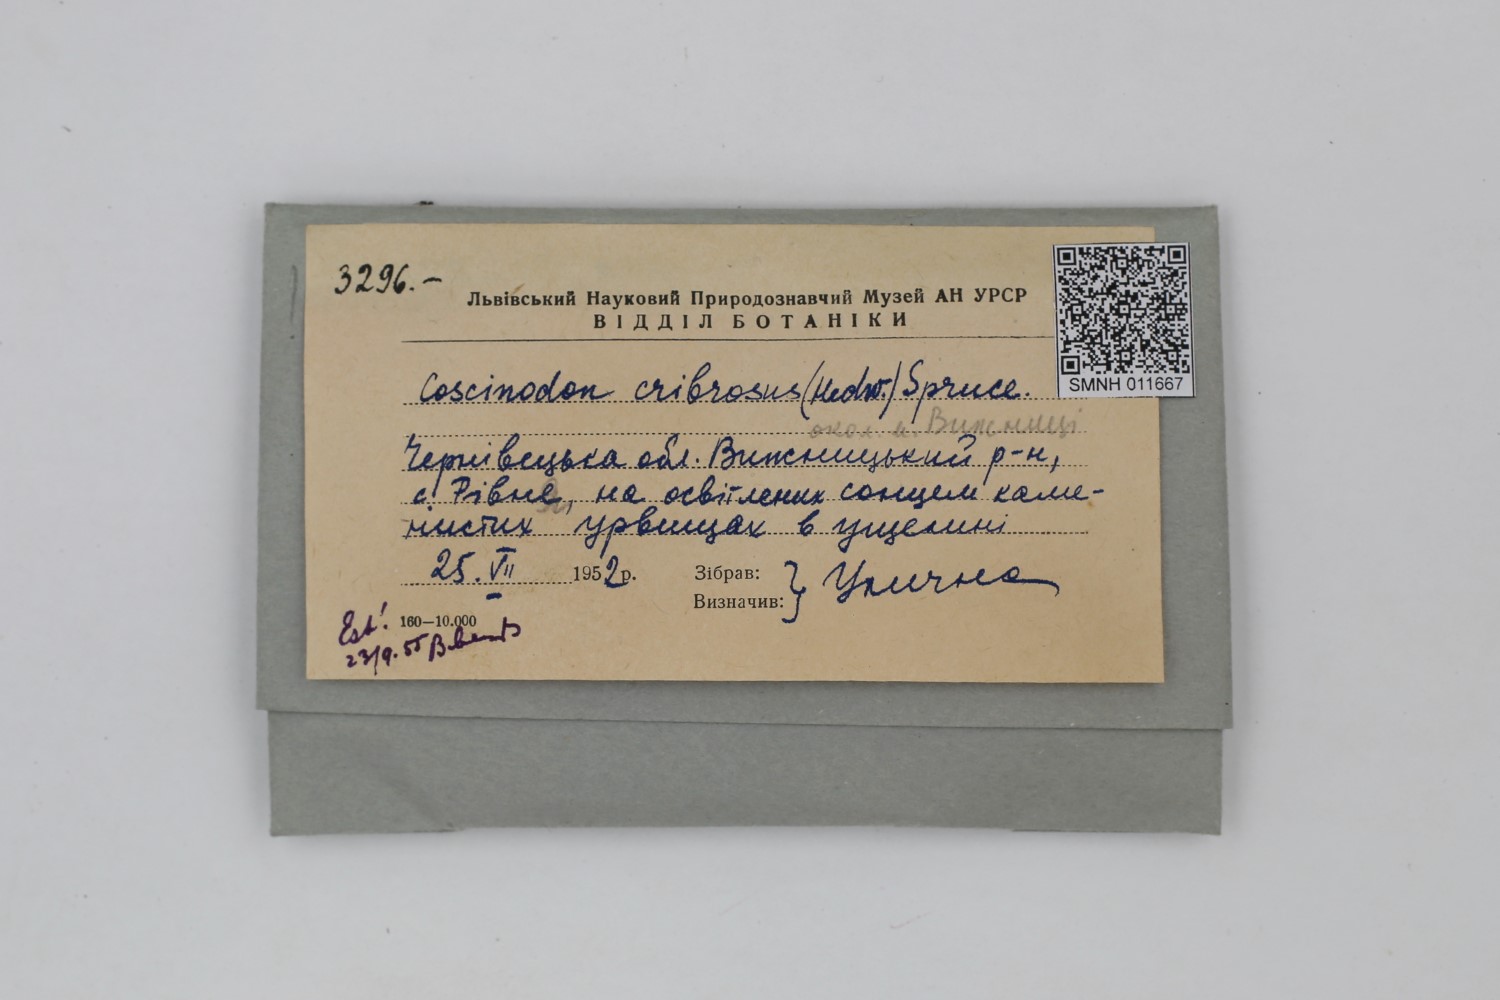 3296.–
Львівський Науковий Природознавчий Музей АН УРСР
ВІДДІЛ БОТАНІКИ
SMNH 011667
Coscinodon cribrosus (Hedw.) Spruce.
окол. м. Вижниці
Чернівецька обл. Вижницький р-н,
с. Рівне, на освітлених сонцем каме-
нистих урвищах в ущелині
25. VII 1952 р. Зібрав:
Визначив: } Улична
160—10.000
Est!
23/9.55